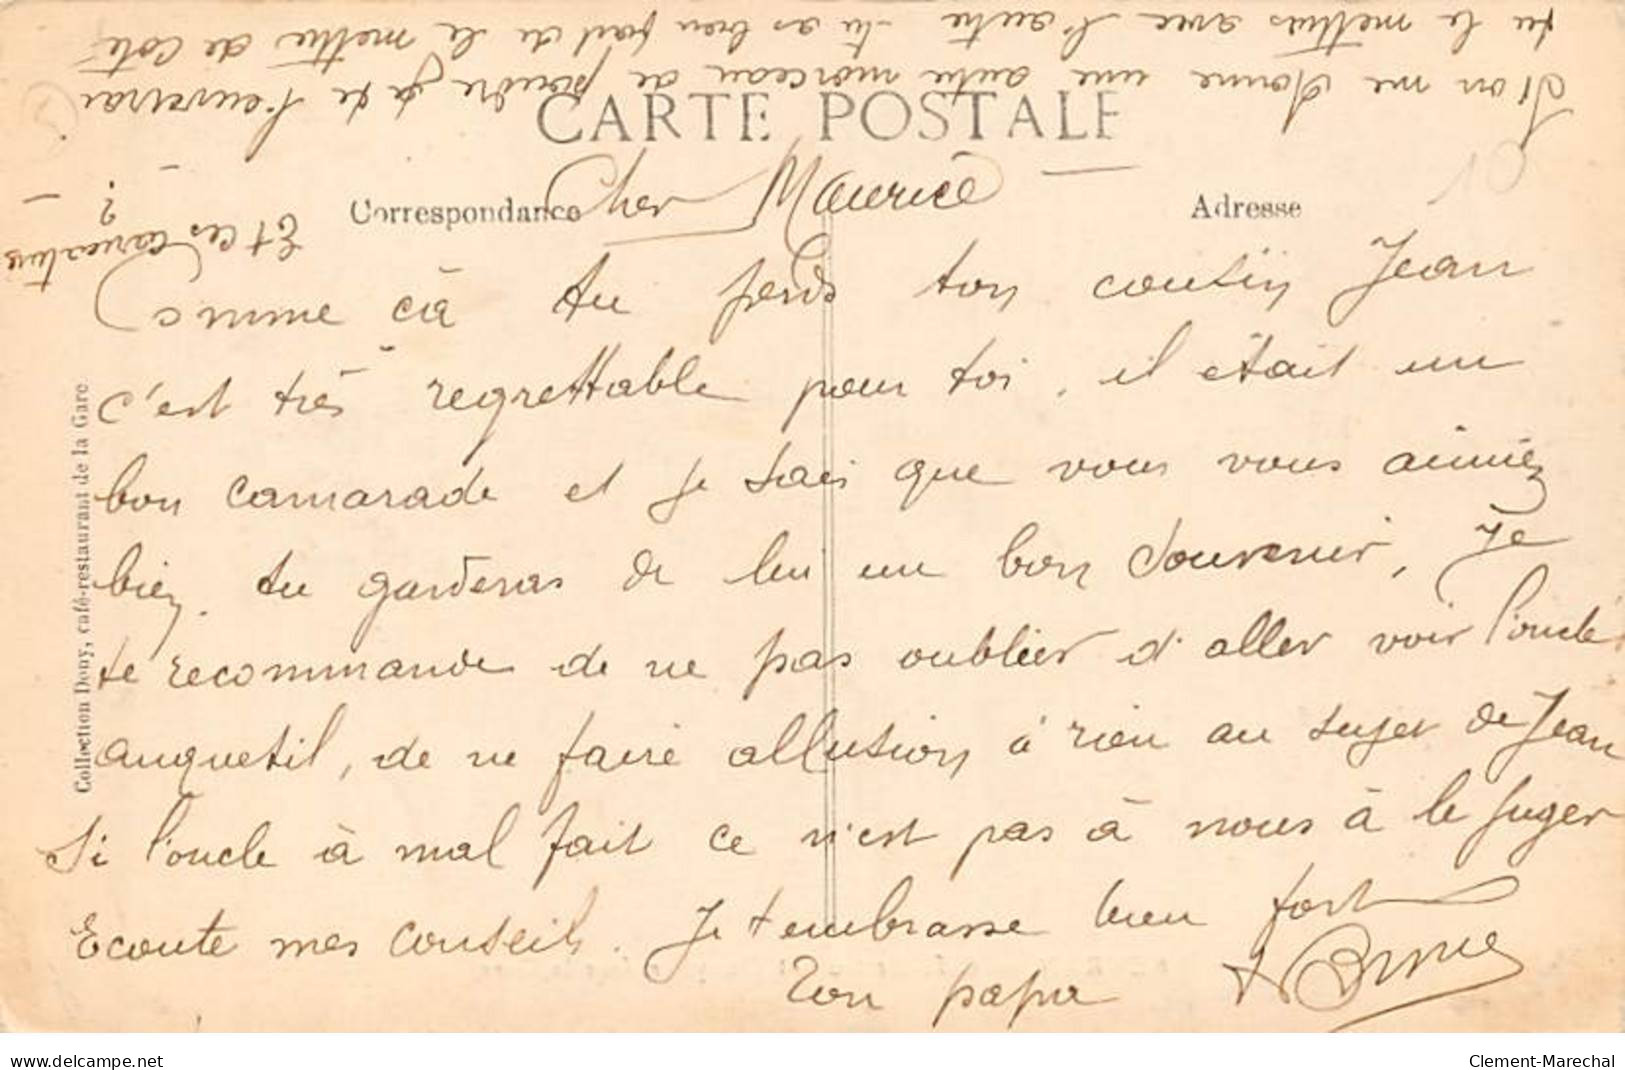 Si on me donne une autre morceau de poudre je te l'enverrai
tu le mettras avec l'autre tu as bien fait de le mettre de coté
CARTE POSTALE
Correspondance
Adresse
Et ces
?
Cher Maurice
Comme çà tu perds ton cousin Jean
c'est très regrettable pour toi, il était un
bon camarade et je sais que vous vous aimiez
bien. tu garderas de lui un bon souvenir, Je
te recommande de ne pas oublier d'aller voir l'oncle
anquetil, de ne faire allusion à rien au sujet de Jean
Si l'oncle à mal fait ce n'est pas à nous à le juger
Ecoute mes conseils. Je t'embrasse bien fort
Ton papa
Collection Dony, café-restaurant de la Gare
www.delcampe.net
Clement-Marechal